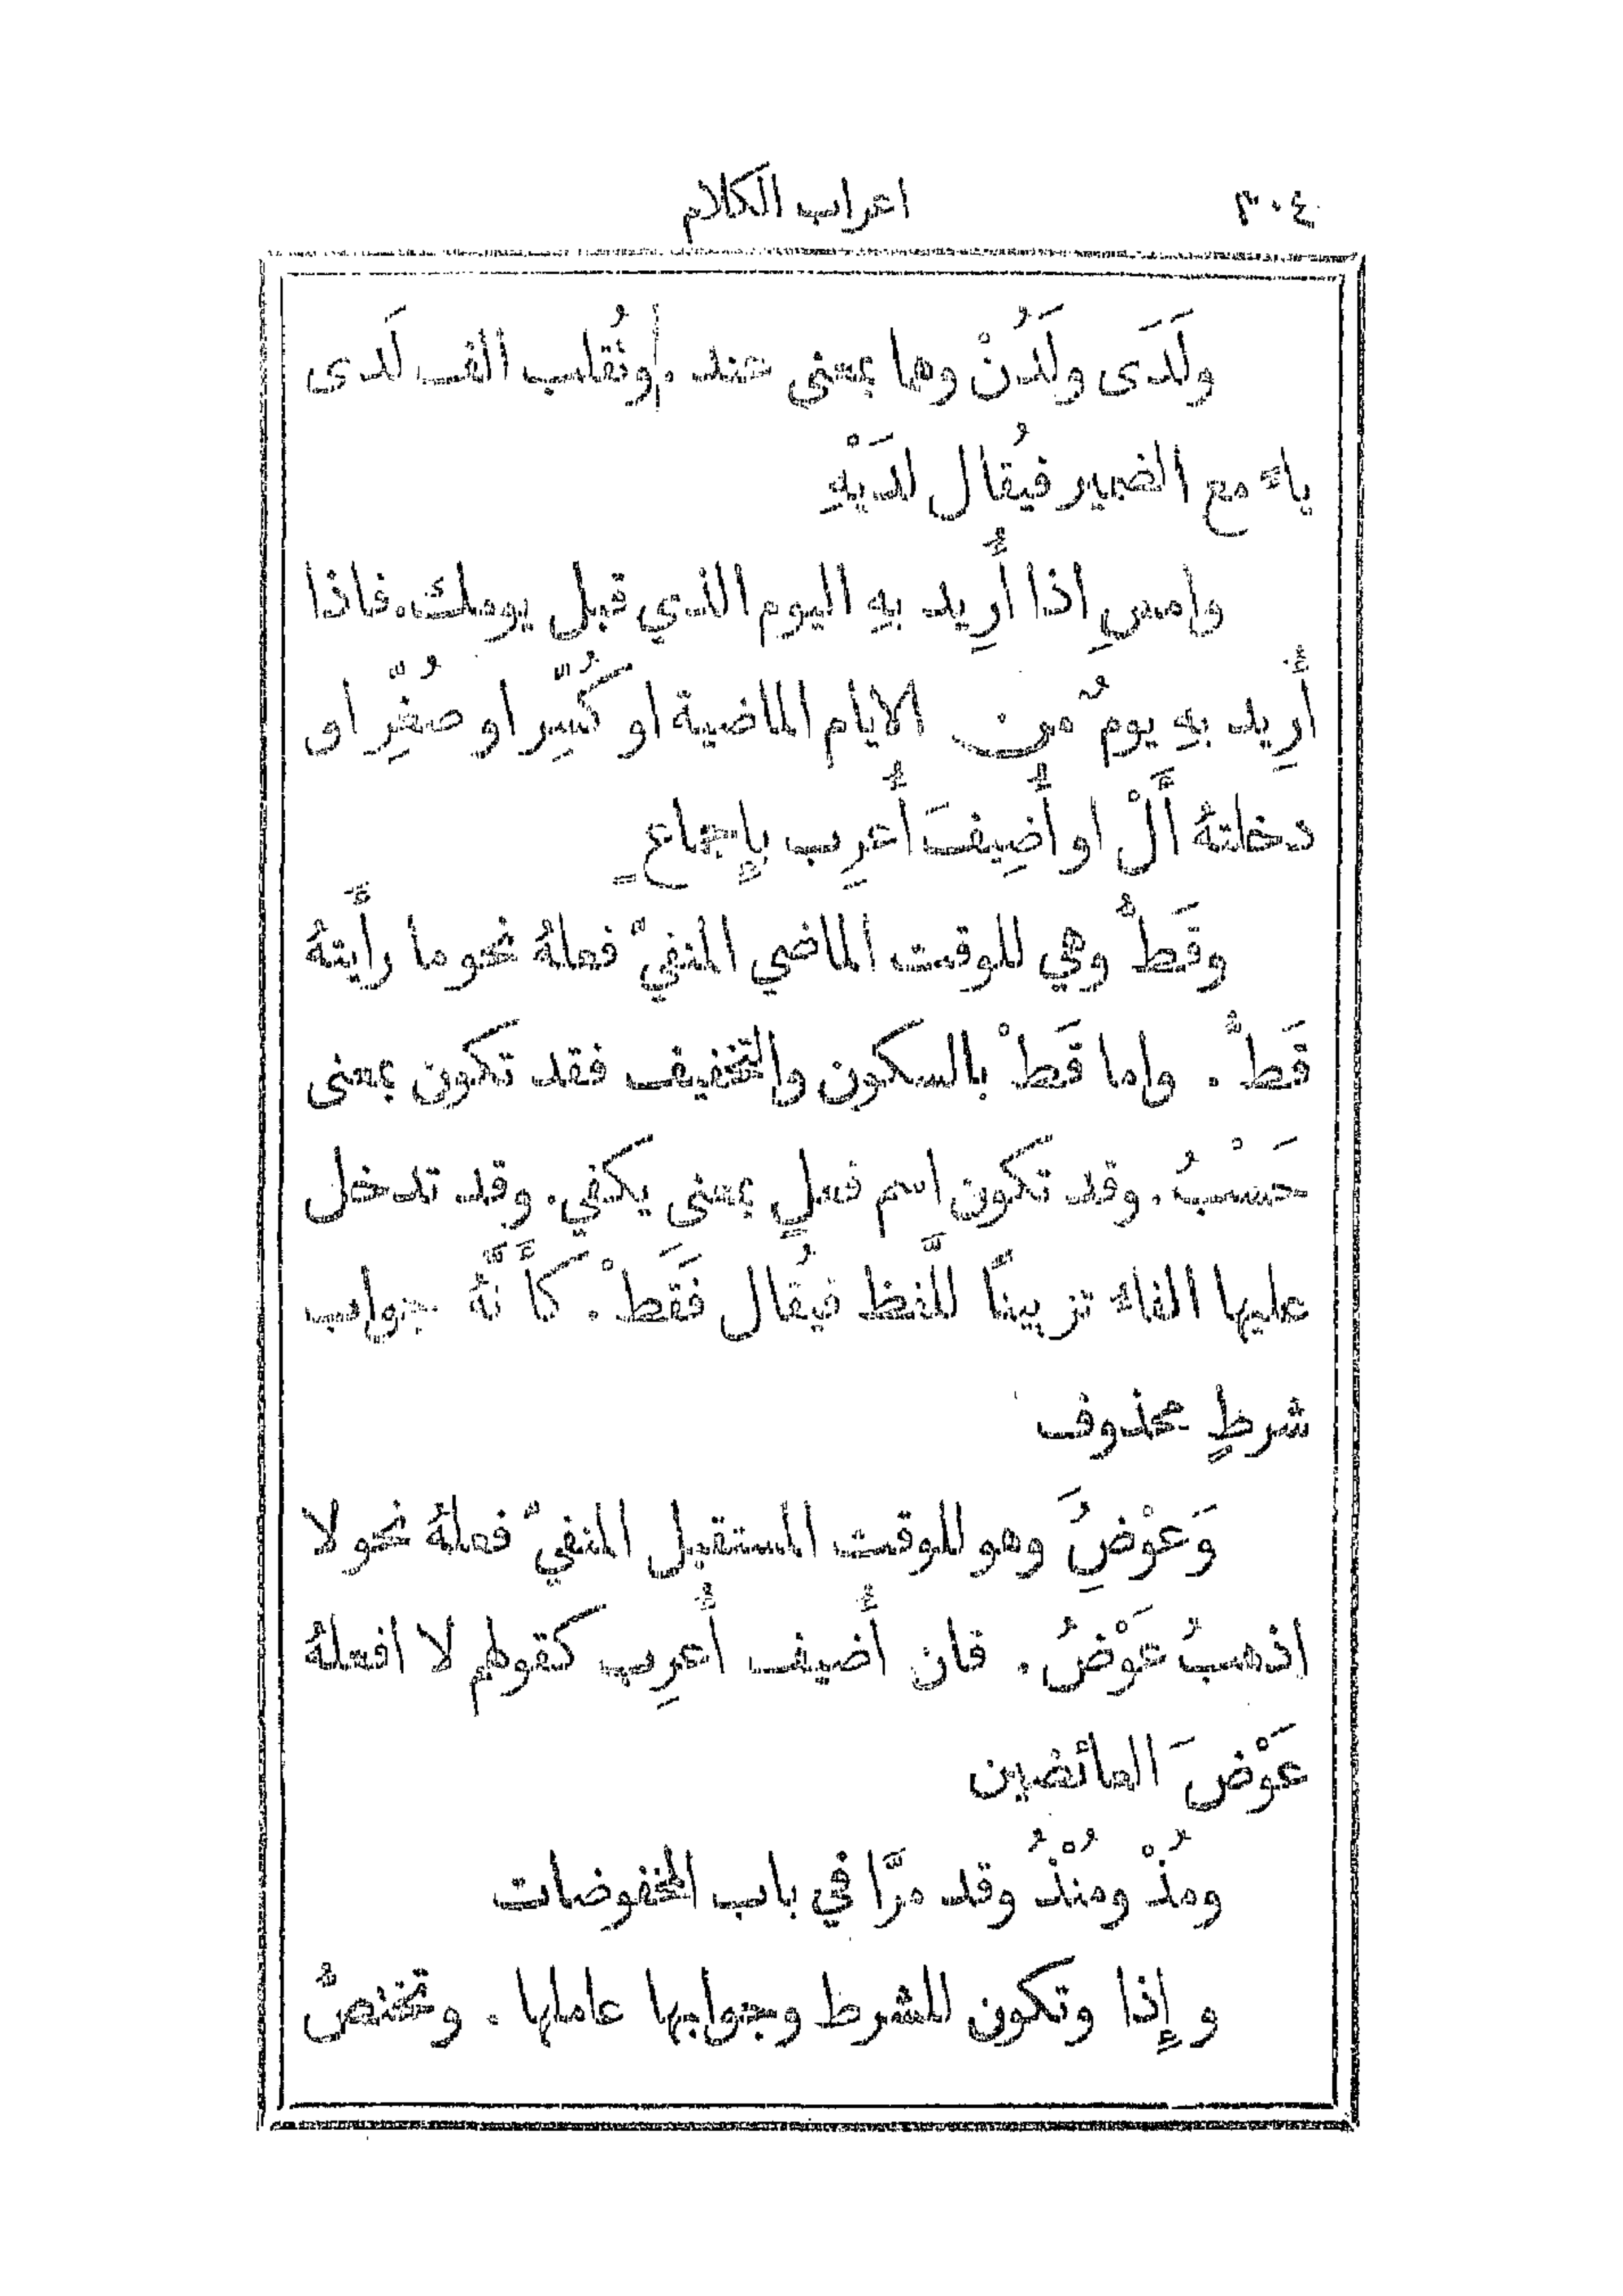 ٣٠٤ اعراب الكلام
ولَدَى ولَدُنْ وهما بمعنى عند. وتُقلب الف لَدى
ياءً مع الضمير فيُقال لدَيْهِ
وامسِ اذا أُرِيد بهِ اليوم الذي قبل يومك. فاذا
أُرِيد بهِ يومٌ من الايام الماضية او كُسِّر او صُغِّر او
دخلتهُ أَلْ او أُضِيفَ أُعرِب بإِجماعٍ
وقَطُّ وهي للوقت الماضي المنفيّ فعلهُ نحو ما رأَيتهُ
قَطُّ. واما قَطْ بالسكون والتخفيف فقد تكون بمعنى
حَسْبُ. وقد تكون اسم فعلٍ بمعنى يكفي. وقد تدخل
عليها الفاءُ تزيينًا للَّفظ فيُقال فَقَطْ. كأَنَّهُ جواب
شرطٍ محذوف
وَعوْضُِ وهو للوقت المستقبل المنفيّ فعلهُ نحو لا
اذهبُ عَوْضُ. فان أُضيف أُعرِب كقولهم لا افعلهُ
عَوْضَ العائضين
ومُذْ ومُنْذُ وقد مرَّا في باب المخفوضات
وإِذا وتكون للشرط وجوابها عاملها. وتختصُّ